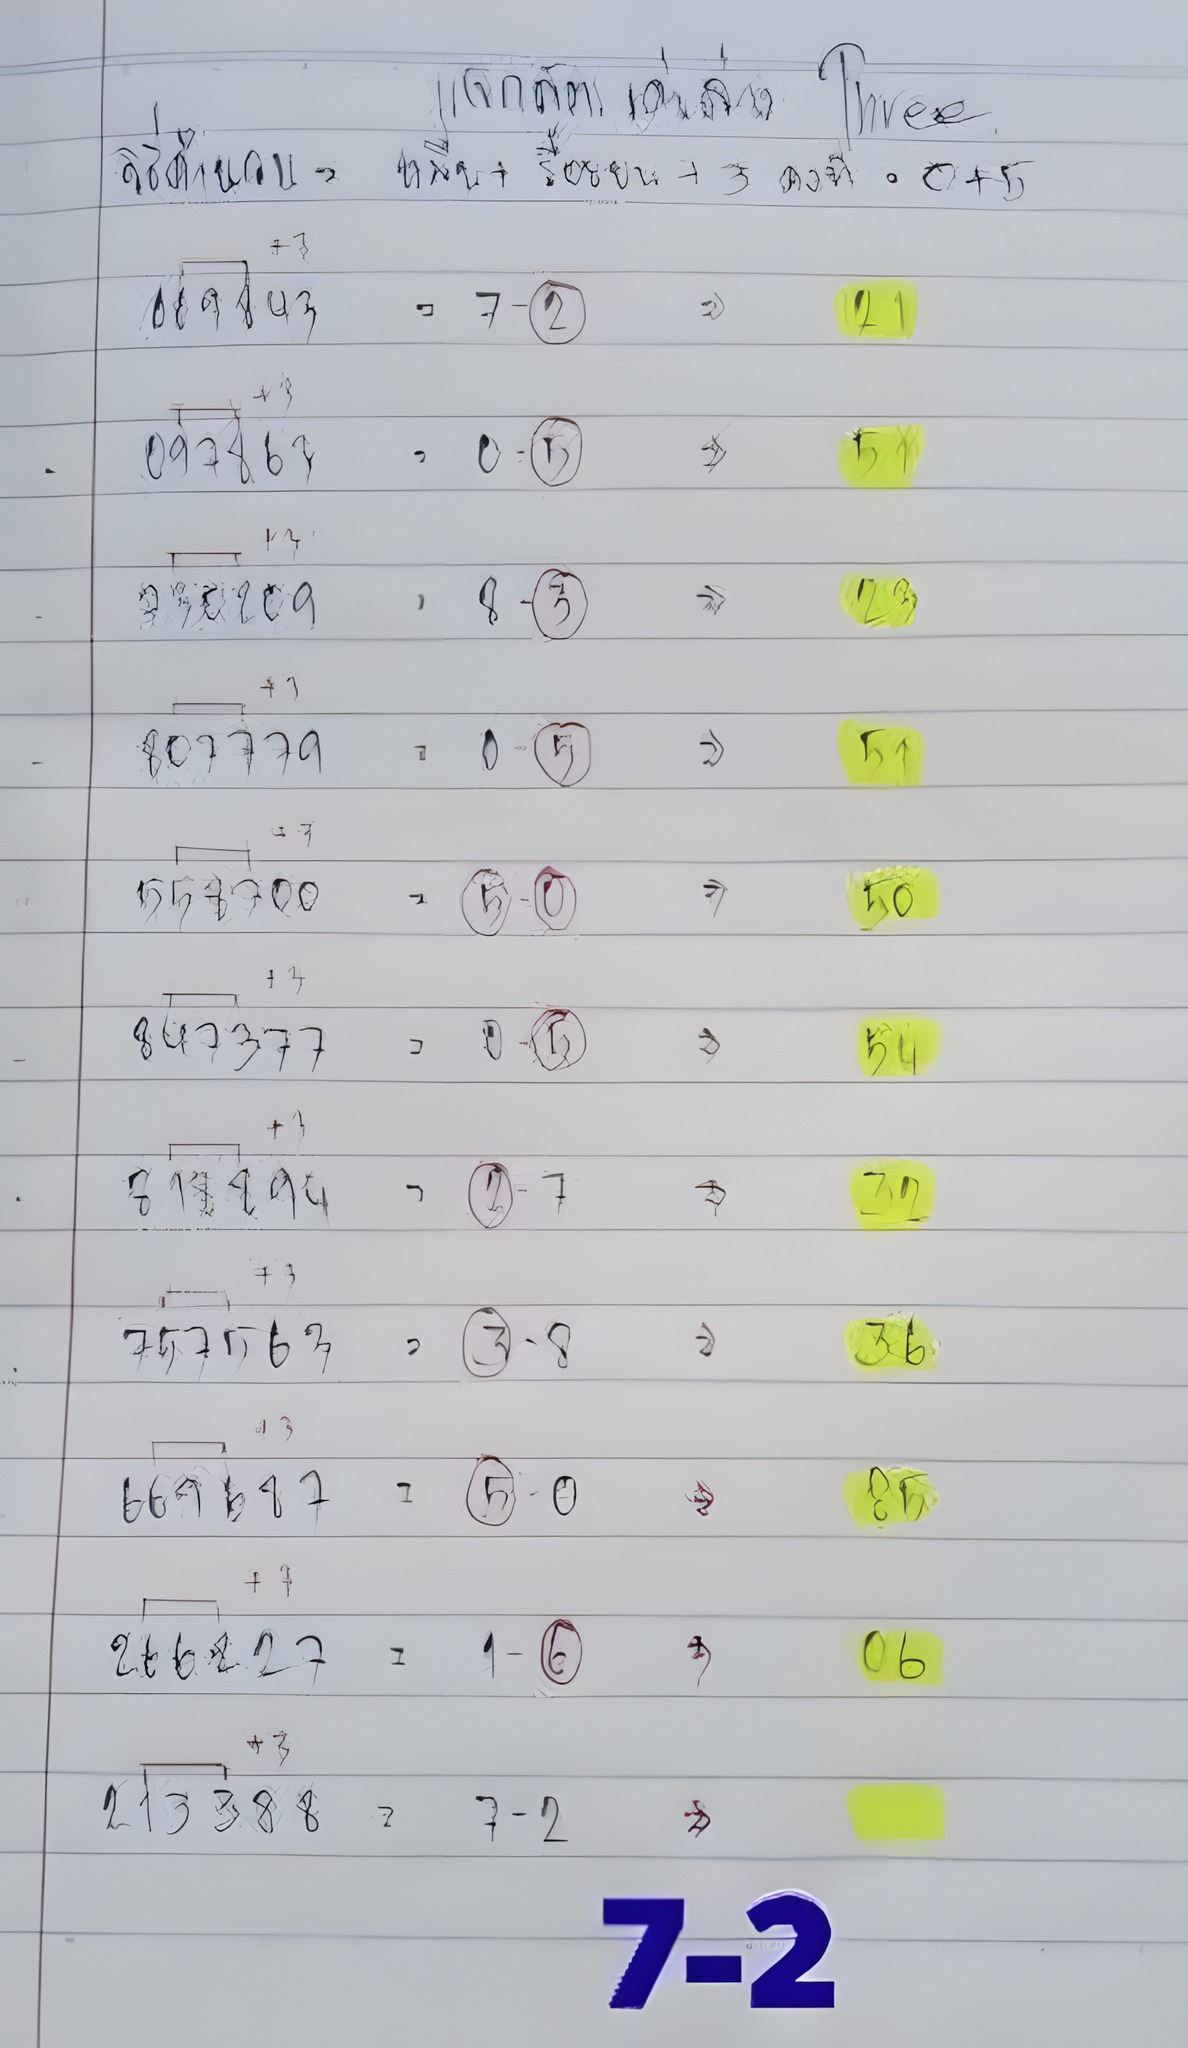 แจกสูตร เด่นล่าง Three
วิธีคำนวน = หมื่น + ร้อยบน + 3 คงที่ . 0+5
+3
669843 = 7-2 ⇒ 21
+3
097863 = 0-5 ⇒ 51
+3
209 = 8-3 ⇒ 23
+3
807779 = 0-5 ⇒ 51
+3
558700 = 5-0 ⇒ 50
+3
847377 = 0-5 ⇒ 54
+3
818894 = 2-7 ⇒ 32
+3
757563 = 3-8 ⇒ 36
+3
669687 = 5-0 ⇒ 85
+3
266827 = 1-6 ⇒ 06
+3
213388 = 7-2 ⇒
7-2